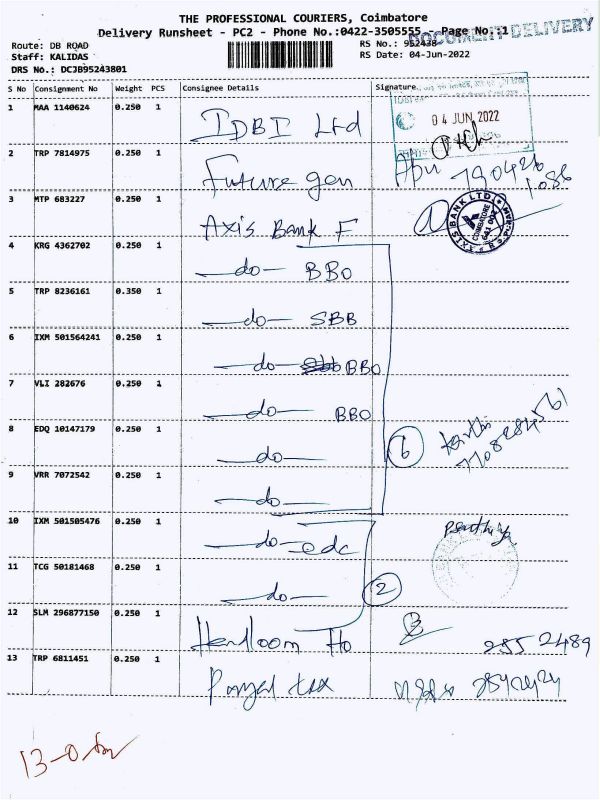 THE PROFESSIONAL COURIERS, Coimbatore
Delivery Runsheet - PC2 - Phone No.:0422-3505555 - Page No.:1
DOCUMENT DELIVERY
Route: DB ROAD
RS No.: 952438
Staff: KALIDAS
RS Date: 04-Jun-2022
DRS No.: DCJB95243801
S No Consignment No Weight PCS Consignee Details Signature
1 MAA 1140624 0.250 1 IDBI Ltd
04 JUN 2022
2 TRP 7814975 0.250 1 Future gen
3 MTP 683227 0.250 1 Axis Bank F
AXIS BANK LTD
COIMBATORE
641 002
4 KRG 4362702 0.250 1 do BBO
5 TRP 8236161 0.350 1 do SBB
6 IXM 501564241 0.250 1 do BBO
7 VLI 282676 0.250 1 do BBO
8 EDQ 10147179 0.250 1 do
6
9 VRR 7072542 0.250 1 do
10 IXM 501505476 0.250 1 do edc
11 TCG 50181468 0.250 1 do
2
12 SLM 296877150 0.250 1 Ho
2852489
13 TRP 6811451 0.250 1